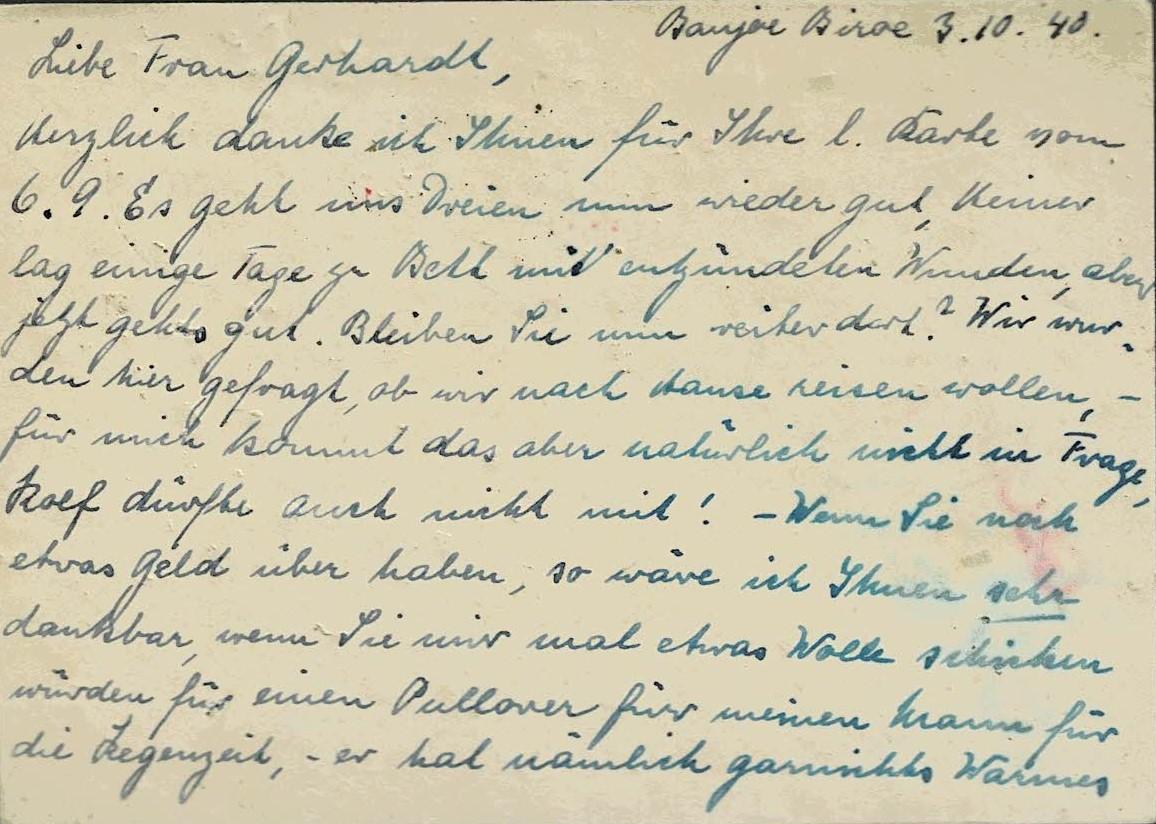 Banjoe Biroe 3.10.40.
Liebe Frau Gerhardt,
Herzlich danke ich Ihnen für Ihre l. Karte vom
6.9. Es geht uns Dreien nun wieder gut, Heiner
lag einige Tage zu Bett mit entzündeten Wunden, aber
jetzt gehts gut. Bleiben Sie nun weiter dort? Wir wur-
den hier gefragt, ob wir nach Hause reisen wollen, -
für mich kommt das aber natürlich nicht in Frage,
Rolf dürfte auch nicht mit! - Wenn Sie noch
etwas Geld über haben, so wäre ich Ihnen sehr
dankbar, wenn Sie mir mal etwas Wolle schicken
würden für einen Pullover für meinen Mann für
die Regenzeit, - er hat nämlich garnichts Warmes